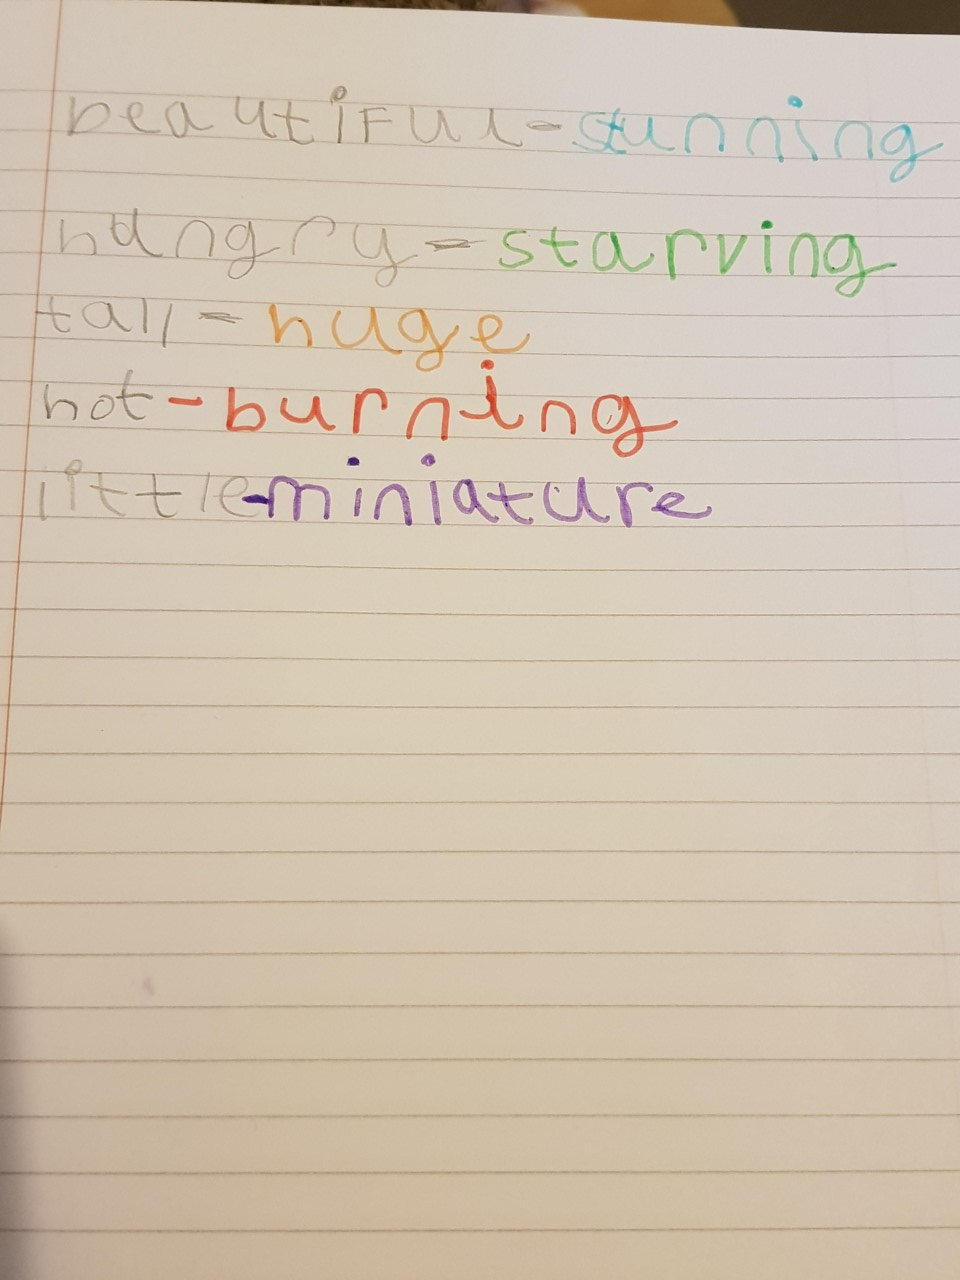 beautiful-stunning
hungry-starving
tall-huge
hot-burning
little-miniature